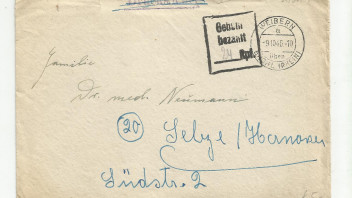 Gebühr
bezahlt
24 Rpf.
WEIBERN
a
Familie
Dr. med. Neumann
(20) Selze/Hannover
Südstr. 2